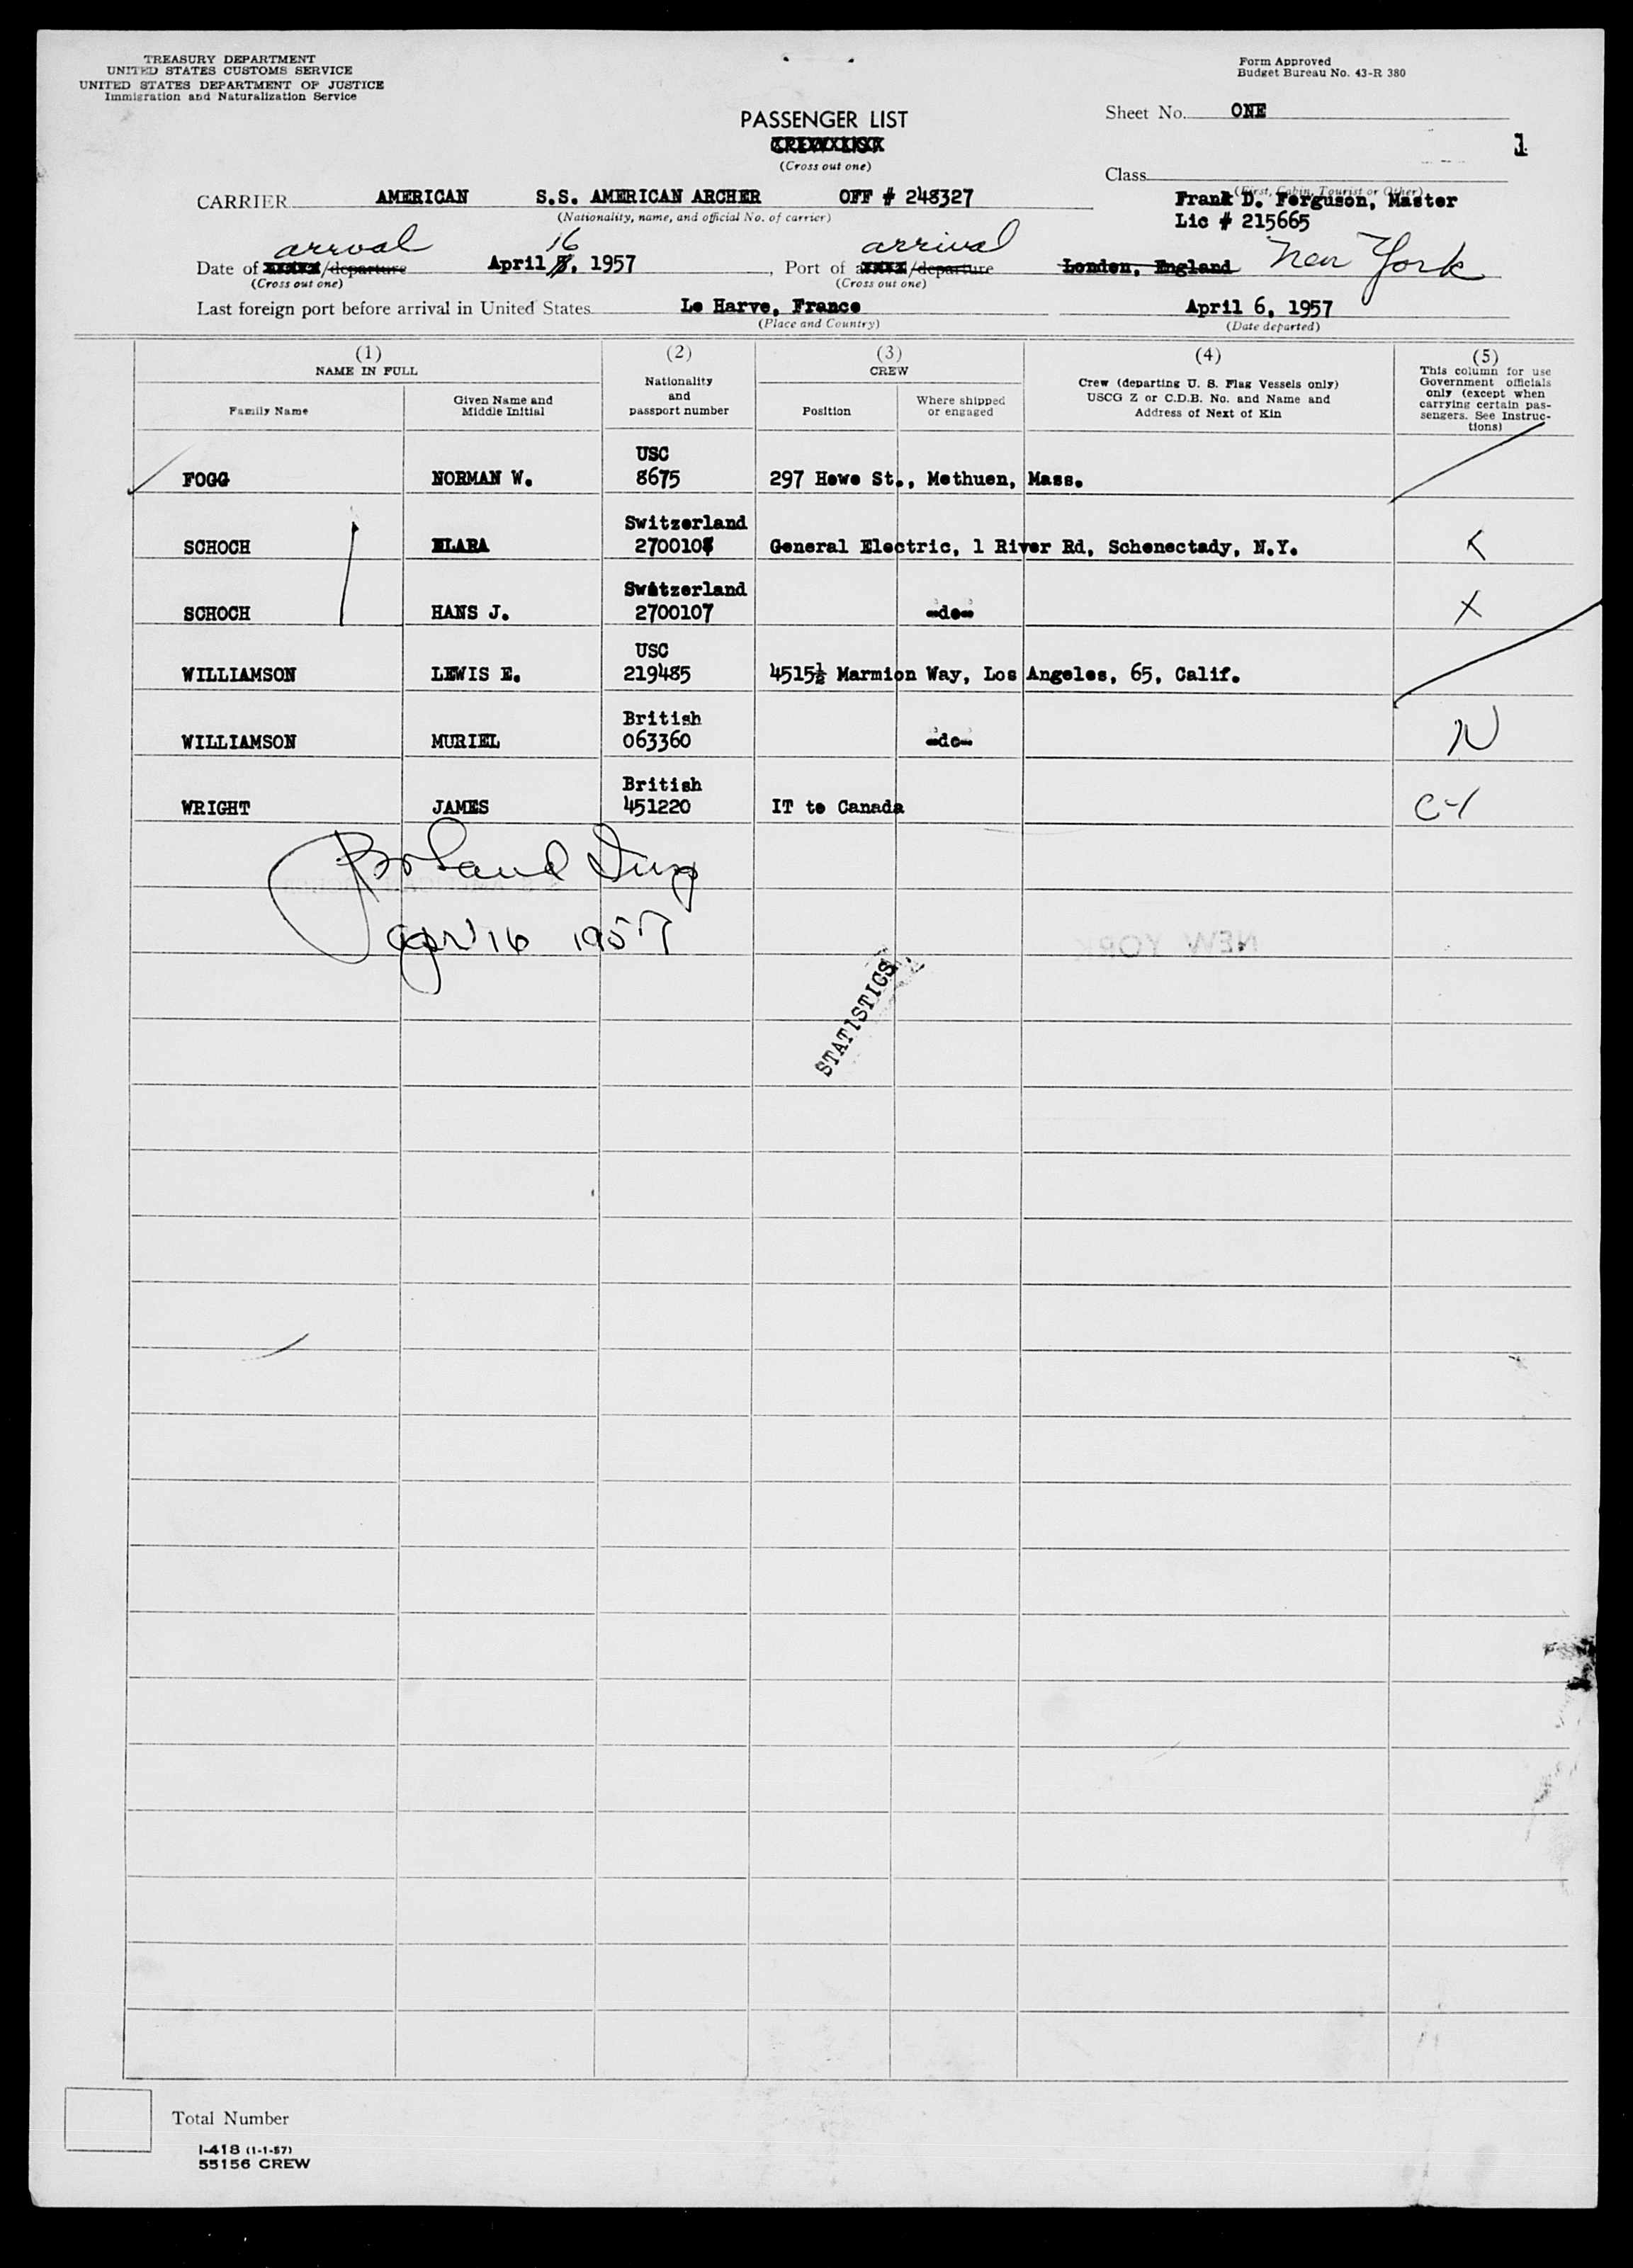 TREASURY DEPARTMENT
UNITED STATES CUSTOMS SERVICE
UNITED STATES DEPARTMENT OF JUSTICE
Immigration and Naturalization Service
Form Approved
Budget Bureau No. 43-R 380
PASSENGER LIST
(Cross out one)
Sheet No. ONE
1
Class
(First, Cabin, Tourist or Other)
CARRIER AMERICAN S.S. AMERICAN ARCHER OFF # 248327
(Nationality, name, and official No. of carrier)
Frank D. Ferguson, Master
Lic # 215665
arrival 16 arrival
Date of /departure April , 1957, Port of /departure London, England New York
(Cross out one) (Cross out one)
Last foreign port before arrival in United States Le Harve, France April 6, 1957
(Place and Country) (Date departed)
(1) (2) (3) (4) (5)
NAME IN FULL
Family Name
Given Name and Middle Initial
Nationality and passport number
CREW
Position
Where shipped or engaged
Crew (departing U. S. Flag Vessels only)
USCG Z or C.D.B. No. and Name and
Address of Next of Kin
This column for use
Government officials
only (except when
carrying certain pas-
sengers. See Instruc-
tions)
USC
FOGG NORMAN W. 8675 297 Howe St., Methuen, Mass.
Switzerland
SCHOCH 2700108 General Electric, 1 River Rd, Schenectady, N.Y. X
Switzerland
SCHOCH HANS J. 2700107 -do- X
USC
WILLIAMSON LEWIS E. 219485 4515½ Marmion Way, Los Angeles, 65, Calif.
British
WILLIAMSON MURIEL 063360 -do- N
British
WRIGHT JAMES 451220 IT to Canada C-1
16 1957
NEW YORK
STATISTICS
Total Number
I-418 (1-1-57)
55156 CREW